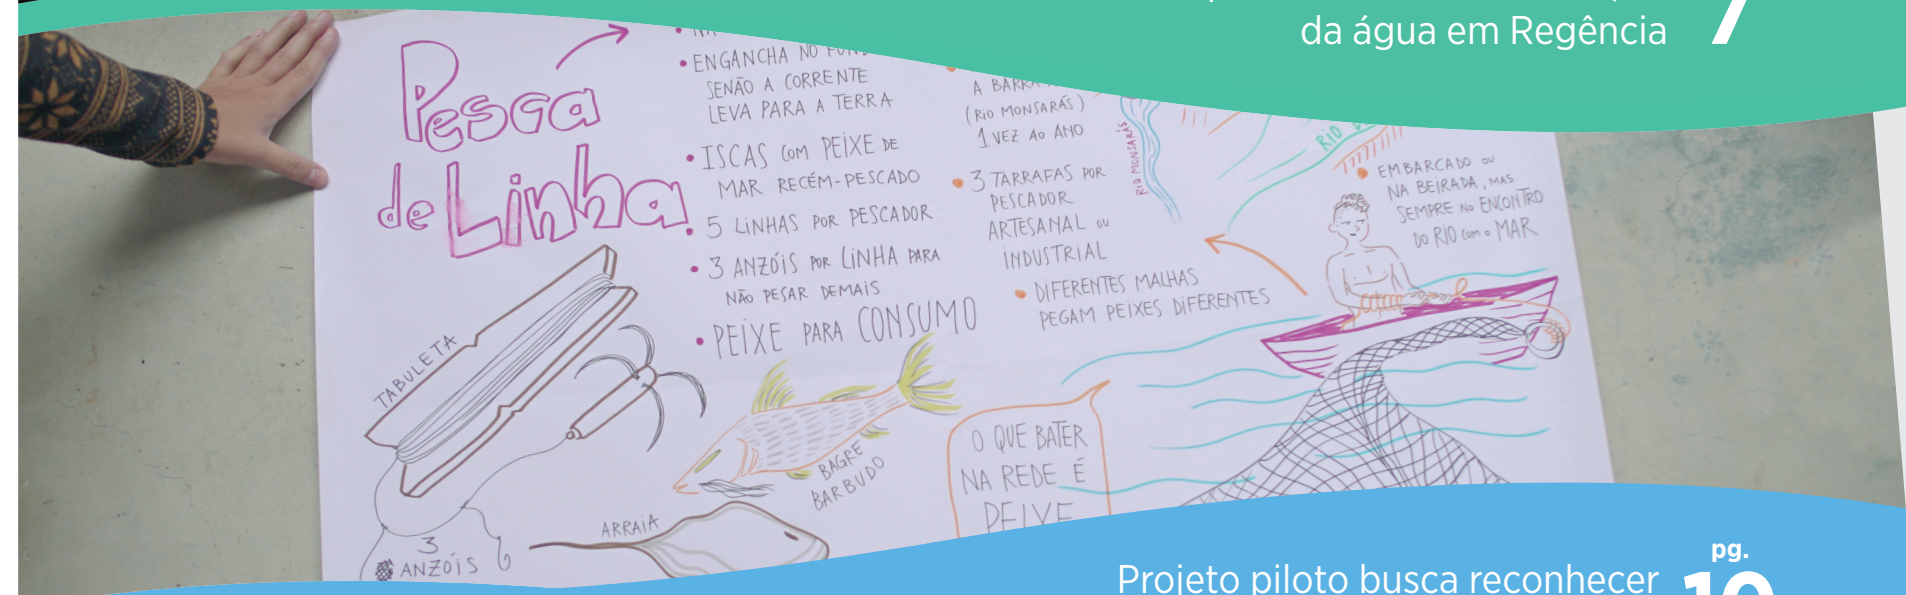 da água em Regência
7
Pesca
de Linha
ENGANCHA NO FUNDO
SENÃO A CORRENTE
LEVA PARA A TERRA
• ISCAS COM PEIXE DE
MAR RECÉM-PESCADO
• 5 LINHAS POR PESCADOR
• 3 ANZÓIS POR LINHA PARA
NÃO PESAR DEMAIS
• PEIXE PARA CONSUMO
A BARRA
(RIO MONSARÁS)
1 VEZ AO ANO
• 3 TARRAFAS POR
PESCADOR
ARTESANAL OU
INDUSTRIAL
• DIFERENTES MALHAS
PEGAM PEIXES DIFERENTES
RIO MONSARÁS
RIO
• EMBARCADO OU
NA BEIRADA, MAS
SEMPRE NO ENCONTRO
DO RIO COM O MAR
TABULETA
3
ANZÓIS
BAGRE
BARBUDO
ARRAIA
O QUE BATER
NA REDE É
PEIXE
pg.
10
Projeto piloto busca reconhecer